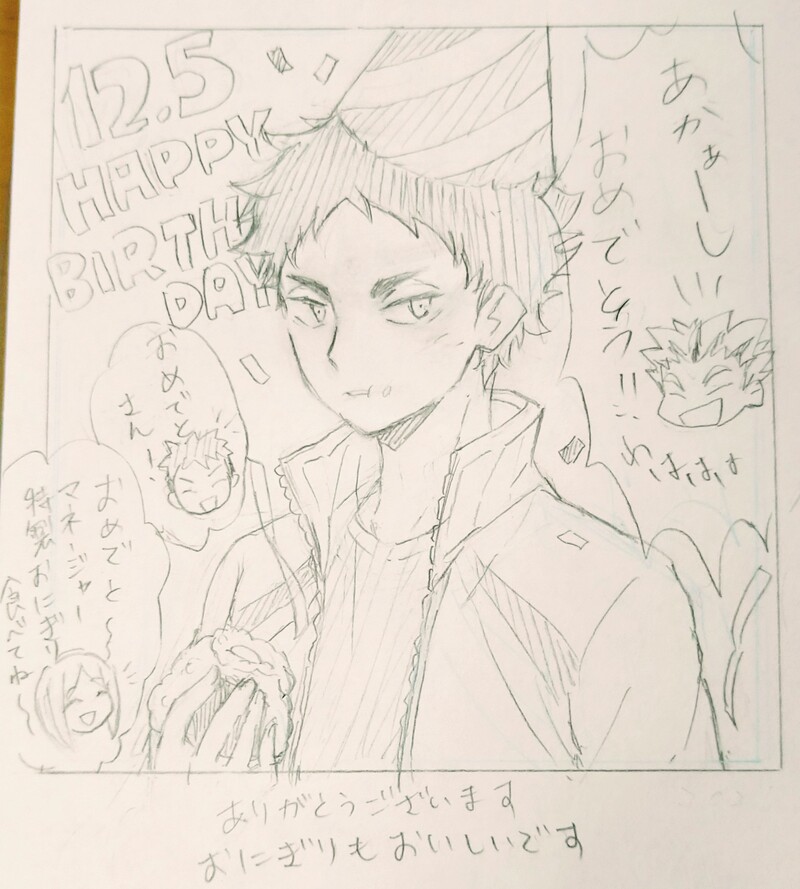 12.5
HAPPY
BIRTH
DAY
あかぁーし
おめでとう!!
わはははは
おめでと
さん!
おめでと〜
マネージャー
特製おにぎり
食べてね〜
ありがとうございます
おにぎりもおいしいです